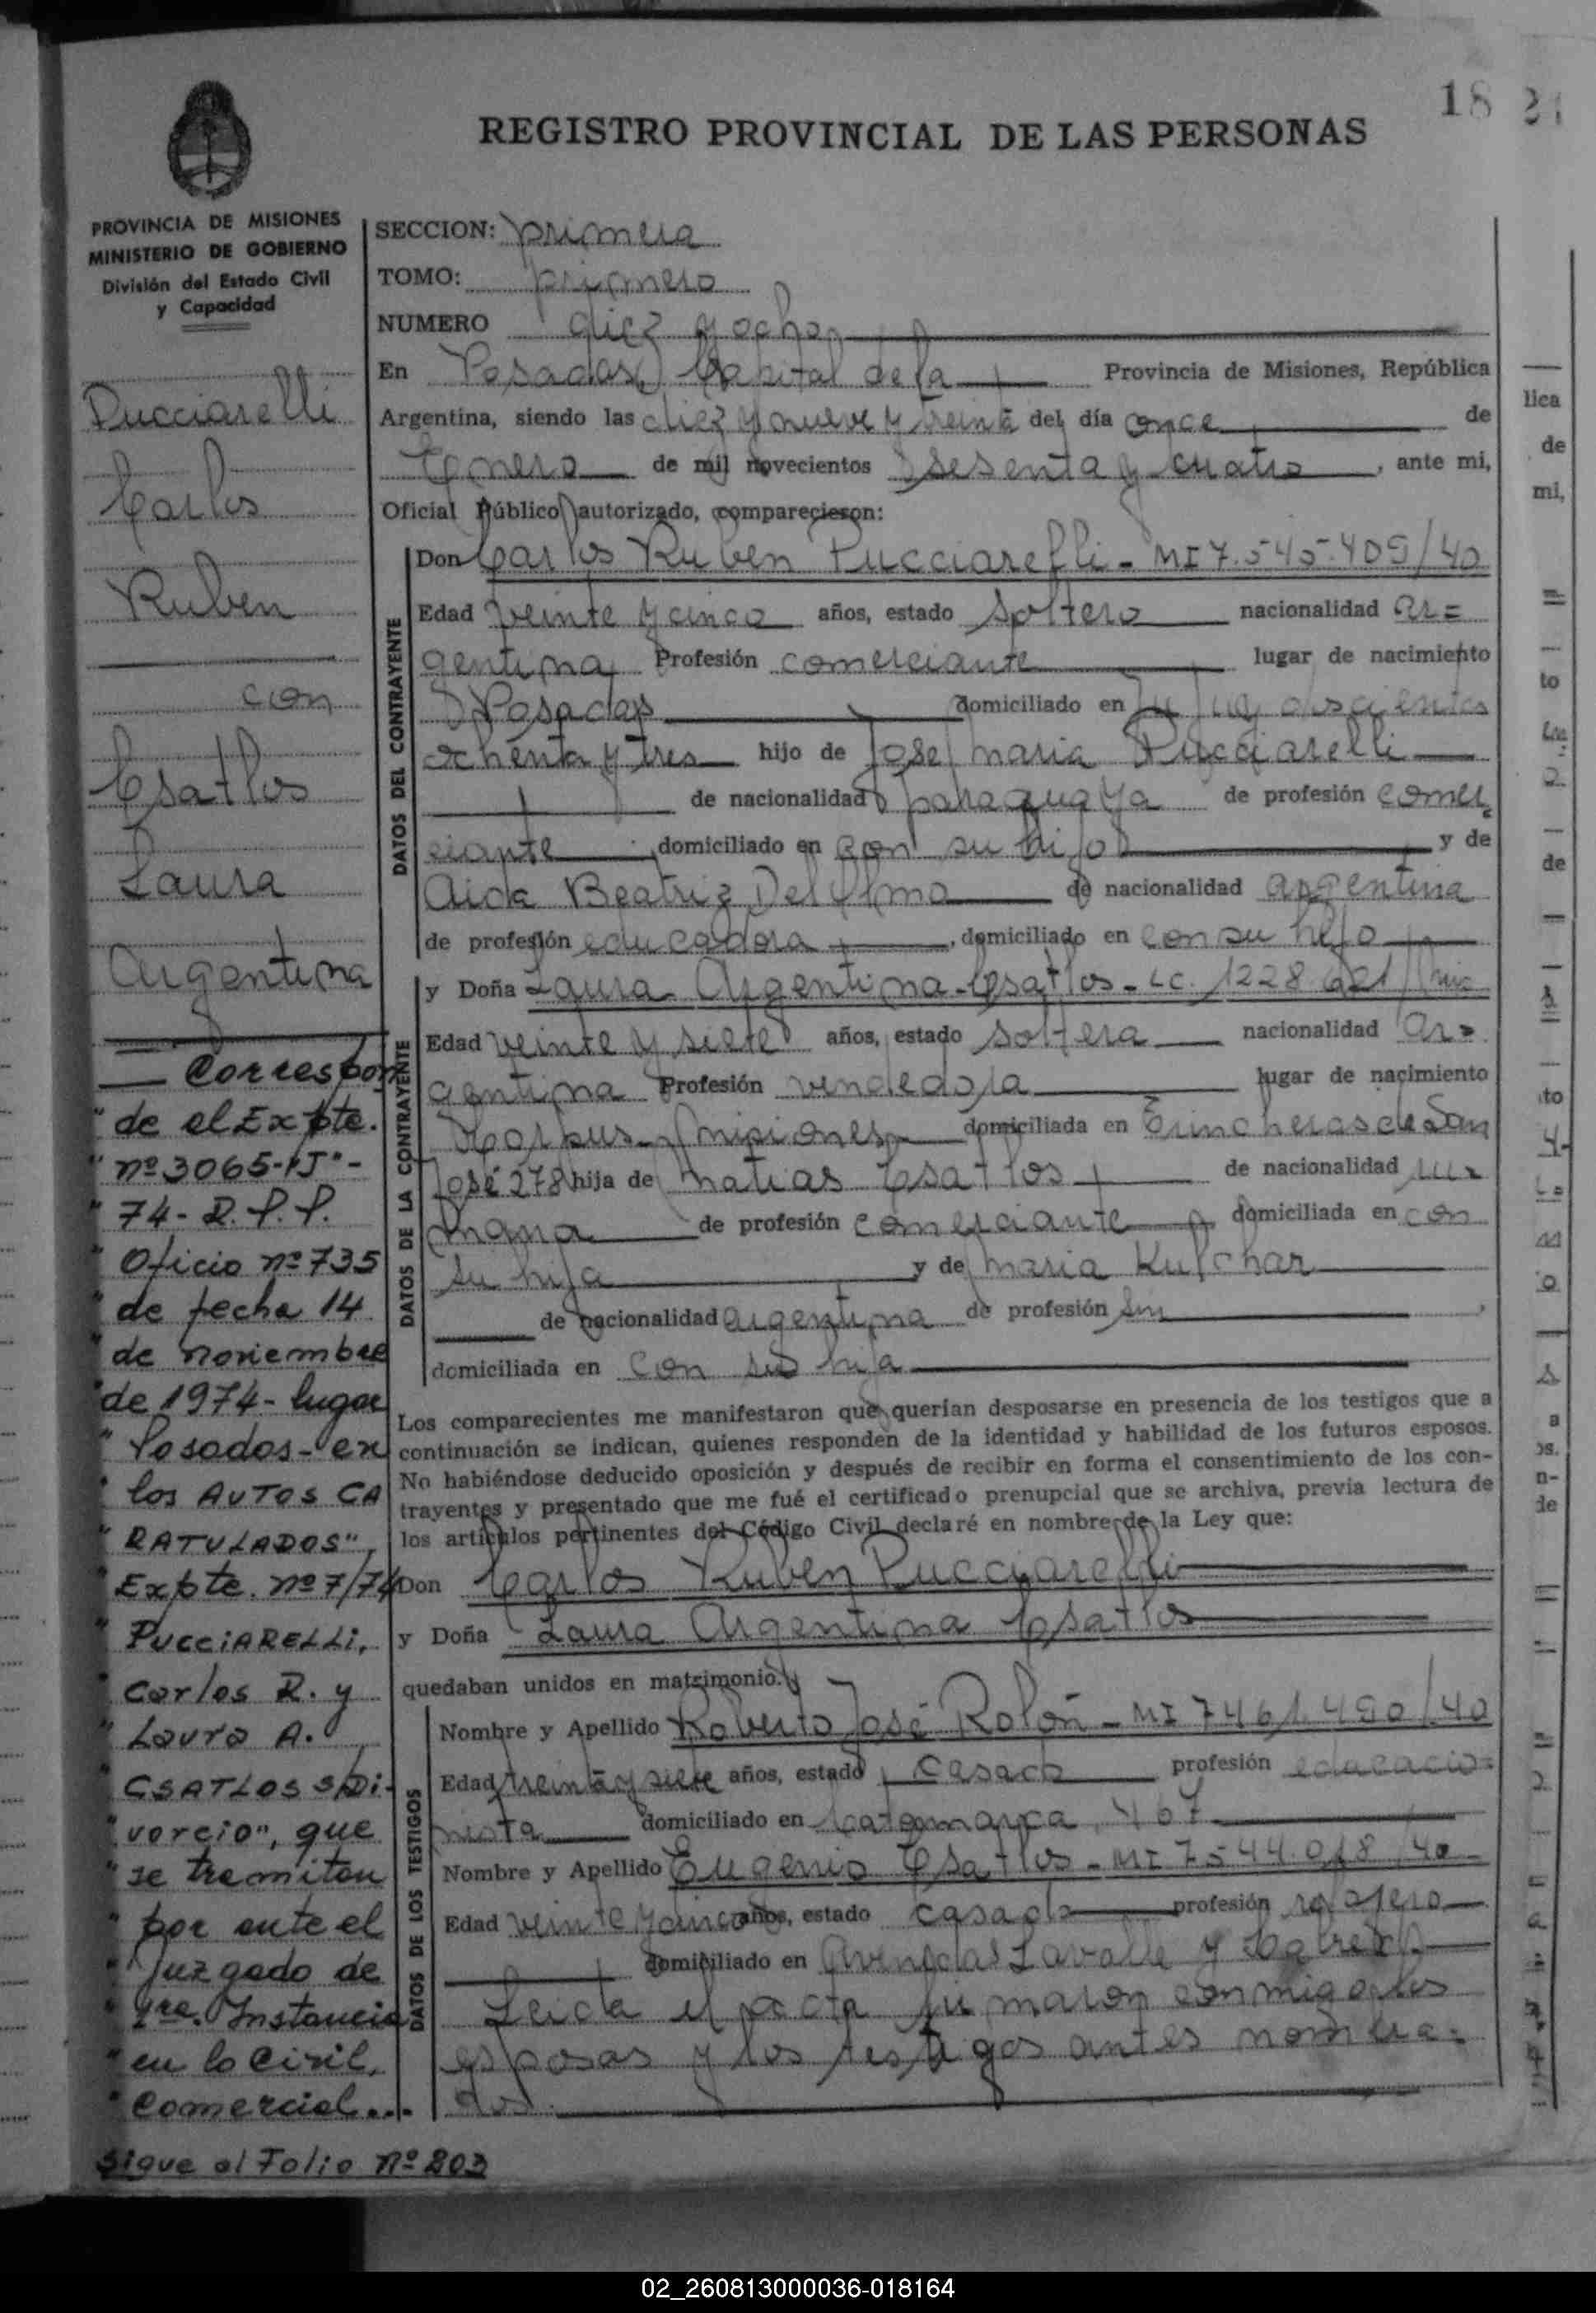 18
REGISTRO PROVINCIAL DE LAS PERSONAS
PROVINCIA DE MISIONES
MINISTERIO DE GOBIERNO
División del Estado Civil
y Capacidad
Pucciarelli
Carlos
Ruben
con
Csatlos
Laura
Argentina
Correspon
"de el Expte.
"nº 3065-"J"-
"74- R.P.P.
"Oficio nº 735
"de fecha 14
"de noviembre
"de 1974- lugar
"Posadas- en
"los AUTOS CA
"RATULADOS",
"Expte. nº 7/74
"PUCCIARELLI,
"Carlos R. y
"Laura A.
"CSATLOS s/Di-
"vorcio", que
"se tramitan
"por ante el
"Juzgado de
"1ra. Instancia
"en lo Civil,
"Comercial...
Sigue al Folio nº 203
SECCION: primera
TOMO: primero
NUMERO diez y ocho
En Posadas, Capital de la Provincia de Misiones, República
Argentina, siendo las diez y nueve y treinta del día once de
Enero de mil novecientos sesenta y cuatro, ante mi,
Oficial Público autorizado, comparecieron:
DATOS DEL CONTRAYENTE
Don Carlos Ruben Pucciarelli - MI 7.545.409/40
Edad veinte y cinco años, estado soltero nacionalidad ar=
gentina Profesión comerciante lugar de nacimiento
Posadas domiciliado en Jujuy doscientos
ochenta y tres hijo de José Maria Pucciarelli
de nacionalidad paraguaya de profesión comer
ciante domiciliado en con su hijo y de
Aida Beatriz Del de nacionalidad argentina
de profesión educadora, domiciliado en con su hijo
DATOS DE LA CONTRAYENTE
y Doña Laura Argentina Csatlos - LC. 1228.621
Edad veinte y siete años, estado soltera nacionalidad ar=
gentina Profesión vendedora lugar de nacimiento
Corpus - Misiones domiciliada en Trincheras de San
José 278 hija de Matias Csatlos de nacionalidad ru=
mana de profesión comerciante domiciliada en con
su hija y de Maria Kulchar
de nacionalidad argentina de profesión sin
domiciliada en con su hija
Los comparecientes me manifestaron que querían desposarse en presencia de los testigos que a
continuación se indican, quienes responden de la identidad y habilidad de los futuros esposos.
No habiéndose deducido oposición y después de recibir en forma el consentimiento de los con-
trayentes y presentado que me fué el certificado prenupcial que se archiva, previa lectura de
los artículos pertinentes del Código Civil declaré en nombre de la Ley que:
Don Carlos Ruben Pucciarelli
y Doña Laura Argentina Csatlos
quedaban unidos en matrimonio.
DATOS DE LOS TESTIGOS
Nombre y Apellido Roberto José Rolón - MI 7461.490/40
Edad treinta y siete años, estado casado profesión educacio=
nista domiciliado en Catamarca 467
Nombre y Apellido Eugenio Csatlos - MI 7544.018/40
Edad veinte y cinco años, estado casado profesión relojero
domiciliado en Avenidas Lavalle y Cabred
Leida el acta firmaron conmigo los
esposos y los testigos antes nombra=
dos
lica
de
mi,
to
de
02_260813000036-018164